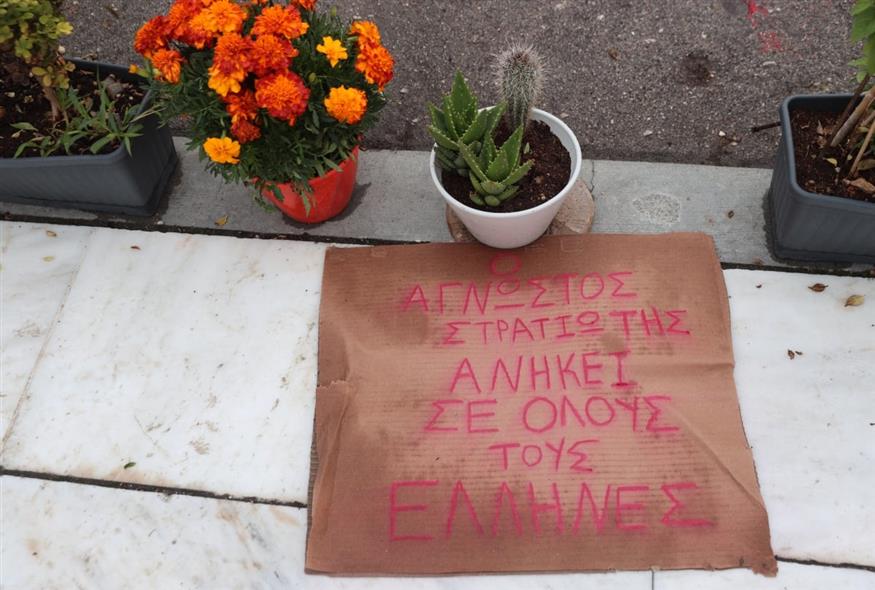 Ο
ΑΓΝΩΣΤΟΣ
ΣΤΡΑΤΙΩΤΗΣ
ΑΝΗΚΕΙ
ΣΕ ΟΛΟΥΣ
ΤΟΥΣ
ΕΛΛΗΝΕΣ